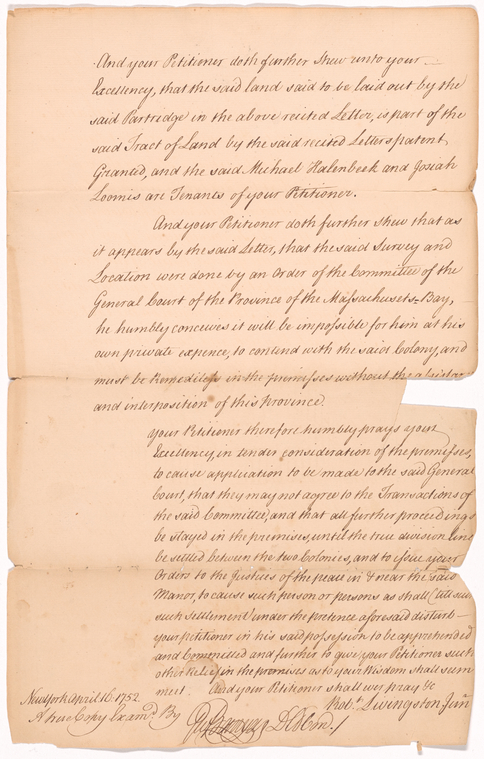 And your Petitioner doth further shew unto your
Excellency, that the said land said to be laid out by the
said Partridge in the above recited Letter, is part of the
said Tract of Land by the said recited Letters patent
Granted, and the said Michael Halenbeek and Josiah
Loomis are Tenants of your Petitioner.
And your Petitioner doth further shew that as
it appears by the said Letter, that the said Survey and
Location were done by an Order of the Committee of the
General Court of the Province of the Massachusets-Bay,
he humbly conceives it will be impossible for him at his
own private expence, to contend with the said Colony, and
must be Remediless in the premisses without the
and interposition of this province.
Your Petitioner therefore humbly prays your
Excellency, in tender consideration of the premisses,
to cause application to be made to the said General
Court, that they may not agree to the Transactions of
the said Committee, and that all further proceedings
be stayed in the premises, until the true division line
be settled between the two Colonies, and to issue your
Orders to the Justices of the peace in & near the said
Manor, to cause such person or persons as shall till such
such Settlement under the pretence aforesaid disturb
your petitioner in his said possession to be apprehended
and Committed and further to give your Petitioner such
other Relief in the premises as to your Wisdom shall seem
meet. And your Petitioner shall ever pray &c
Robt. Livingston Junr
New York April 16. 1752
A true Copy Examd. By
DCl Con